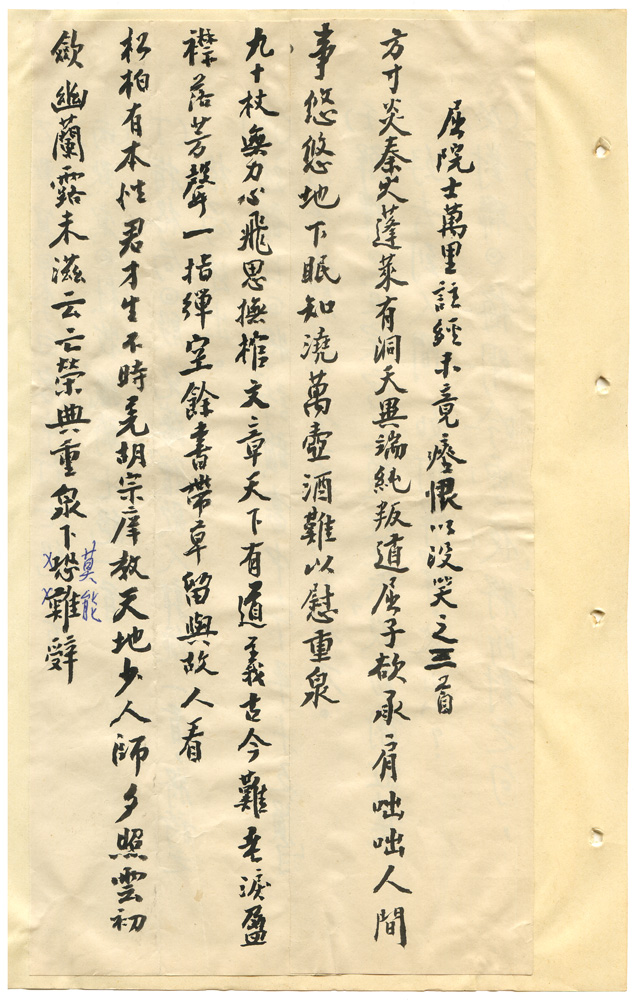 屈院士萬里註經未竟瘞恨以沒哭之三首
方寸炎秦火蓬萊有洞天異端純叛道屈子欲承肩咄咄人間
事悠悠地下眠知澆萬壺酒難以慰重泉
九十杖無力心飛思撫棺文章天下有道義古今難老淚盈
襟落芳聲一指彈空餘書帶草留與故人看
松柏有本性君才生不時羌胡宗庠教天地少人師夕照雲初
斂幽蘭露未滋云亡榮典重泉下恐難辭
莫能